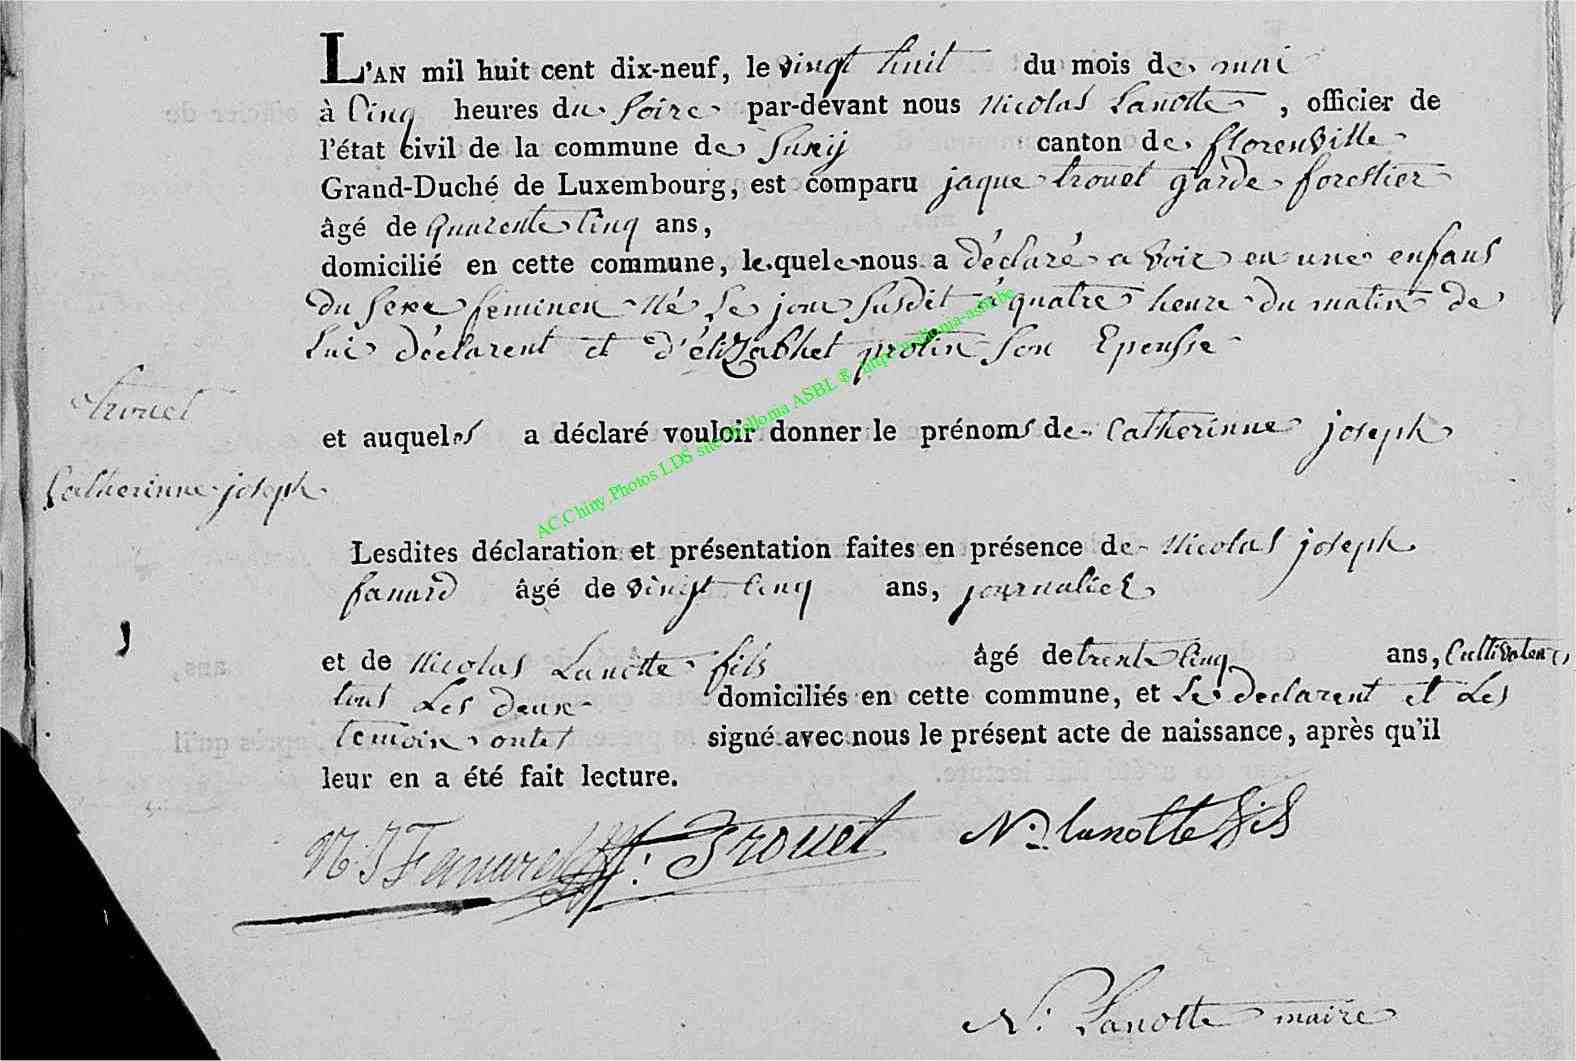 L'AN mil huit cent dix-neuf, le vingt huit du mois de mai
à Cinq heures du Soire par-devant nous Nicolas Lanotte, officier de
l'état civil de la commune de Suxij canton de florenville
Grand-Duché de Luxembourg, est comparu jaque trouet garde forestier
âgé de quarente Cinq ans,
domicilié en cette commune, lequel nous a déclaré avoir eu une enfans
du sexe féminen Né Le jour susdit à quatre heure du matin de
Lui déclarent et d'élizabhet protin Son Epeusse
trouet
et auqueles a déclaré vouloir donner le prénoms de Catherinne joseph
Catherinne joseph
Lesdites déclaration et présentation faites en présence de Nicolas joseph
fanard âgé de vingt Cinq ans, journalier
et de Nicolas Lanotte fils âgé de trente Cinq ans, Cultivateur
tous Les deux domiciliés en cette commune, et Le declarent et Les
temoin ontes signé avec nous le présent acte de naissance, après qu'il
leur en a été fait lecture.
N. J Fanard J: Trouet N. lanotte fils
N: Lanotte maire
AC.Chiny.Photos LDS site Wallonia ASBL ® http://wallonia-asbl.be